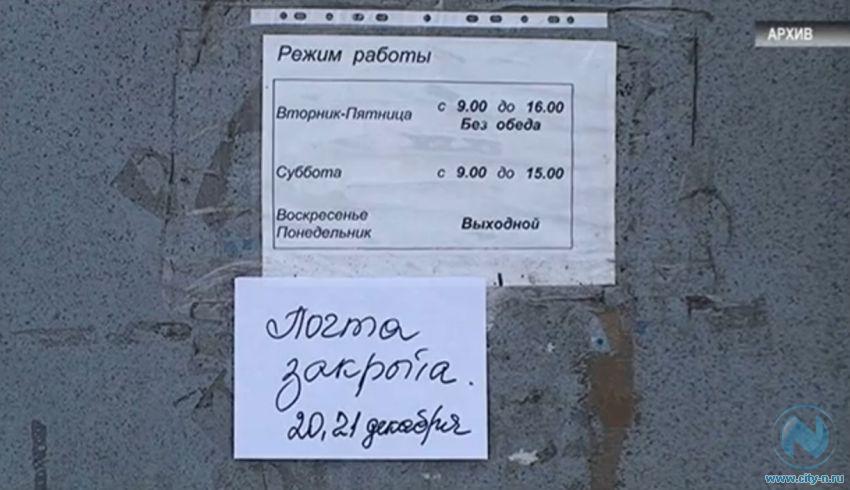 АРХИВ
Режим работы
Вторник-Пятница с 9.00 до 16.00
Без обеда
Суббота с 9.00 до 15.00
Воскресенье
Понедельник Выходной
Почта
закрыта.
20, 21 декабря
N
www.city-n.ru